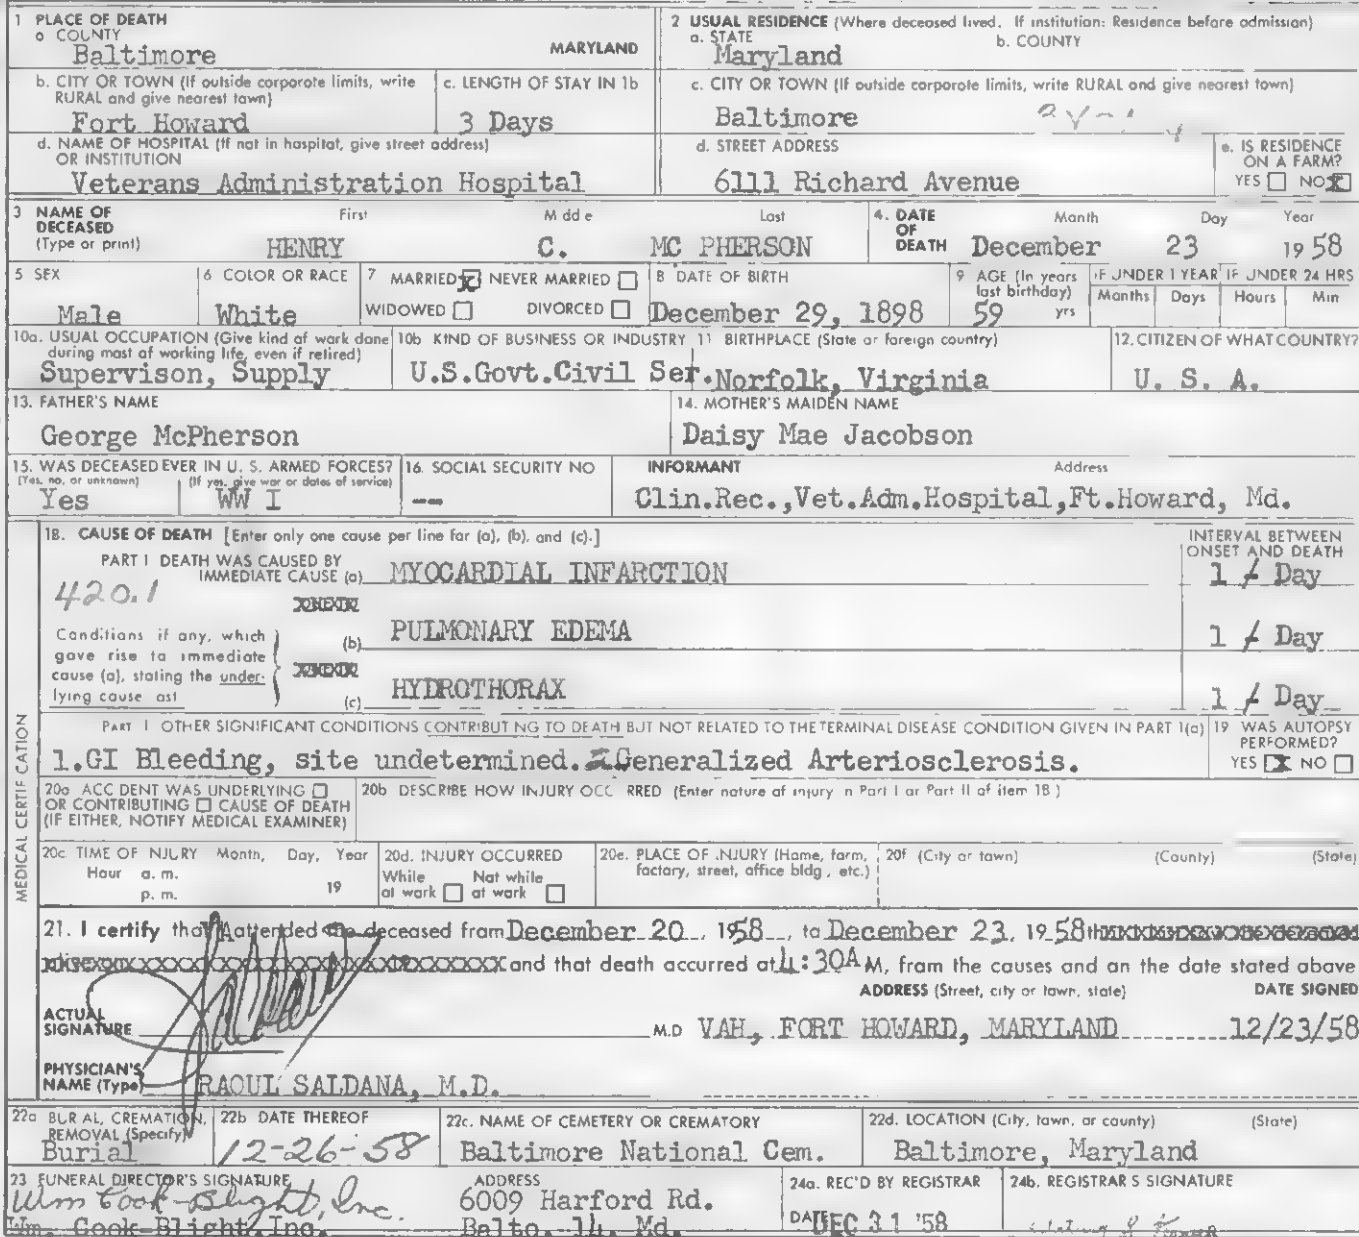 1 PLACE OF DEATH
a COUNTY
Baltimore MARYLAND
2 USUAL RESIDENCE (Where deceased lived. If institution: Residence before admission)
a. STATE b. COUNTY
Maryland
b. CITY OR TOWN (If outside corporate limits, write RURAL and give nearest town)
Fort Howard
c. LENGTH OF STAY IN 1b
3 Days
c. CITY OR TOWN (If outside corporate limits, write RURAL and give nearest town)
Baltimore
d. NAME OF HOSPITAL (If not in hospital, give street address)
OR INSTITUTION
Veterans Administration Hospital
d. STREET ADDRESS
6111 Richard Avenue
e. IS RESIDENCE
ON A FARM?
YES NO X
3 NAME OF DECEASED (Type or print)
First Middle Last
HENRY C. MC PHERSON
4. DATE OF DEATH
Month Day Year
December 23 1958
5 SEX
Male
6 COLOR OR RACE
White
7 MARRIED X NEVER MARRIED
WIDOWED DIVORCED
8 DATE OF BIRTH
December 29, 1898
9 AGE (In years last birthday)
59 yrs
IF UNDER 1 YEAR IF UNDER 24 HRS
Months Days Hours Min
10a. USUAL OCCUPATION (Give kind of work done during most of working life, even if retired)
Supervison, Supply
10b KIND OF BUSINESS OR INDUSTRY
U.S.Govt.Civil Ser.
11 BIRTHPLACE (State or foreign country)
Norfolk, Virginia
12. CITIZEN OF WHAT COUNTRY?
U. S. A.
13. FATHER'S NAME
George McPherson
14. MOTHER'S MAIDEN NAME
Daisy Mae Jacobson
15. WAS DECEASED EVER IN U. S. ARMED FORCES?
(Yes, no, or unknown) (If yes, give war or dates of service)
Yes WW I
16. SOCIAL SECURITY NO
--
INFORMANT Address
Clin.Rec.,Vet.Adm.Hospital,Ft.Howard, Md.
MEDICAL CERTIFICATION
18. CAUSE OF DEATH [Enter only one cause per line for (a), (b), and (c).]
INTERVAL BETWEEN
ONSET AND DEATH
PART I DEATH WAS CAUSED BY
IMMEDIATE CAUSE (a) MYOCARDIAL INFARCTION 1 / Day
420.1
Conditions if any, which gave rise to immediate cause (a), stating the underlying cause last
(b) PULMONARY EDEMA 1 / Day
(c) HYDROTHORAX 1 / Day
PART I OTHER SIGNIFICANT CONDITIONS CONTRIBUTING TO DEATH BUT NOT RELATED TO THE TERMINAL DISEASE CONDITION GIVEN IN PART 1(a)
1.GI Bleeding, site undetermined. 2 Generalized Arteriosclerosis.
19 WAS AUTOPSY
PERFORMED?
YES X NO
20a ACCIDENT WAS UNDERLYING
OR CONTRIBUTING CAUSE OF DEATH
(IF EITHER, NOTIFY MEDICAL EXAMINER)
20b DESCRIBE HOW INJURY OCCURRED (Enter nature of injury in Part I or Part II of item 18)
20c TIME OF INJURY Month, Day, Year
Hour a. m.
p. m. 19
20d. INJURY OCCURRED
While at work Not while at work
20e. PLACE OF INJURY (Home, farm, factory, street, office bldg., etc.)
20f (City or town) (County) (State)
21. I certify that attended the deceased from December 20, 1958, to December 23, 1958
and that death occurred at 4:30A M, from the causes and on the date stated above
ADDRESS (Street, city or town, state) DATE SIGNED
ACTUAL SIGNATURE M.D VAH, FORT HOWARD, MARYLAND 12/23/58
PHYSICIAN'S NAME (Type) RAOUL SALDANA, M.D.
22a BURIAL, CREMATION, REMOVAL (Specify)
Burial
22b DATE THEREOF
12-26-58
22c. NAME OF CEMETERY OR CREMATORY
Baltimore National Cem.
22d. LOCATION (City, town, or county) (State)
Baltimore, Maryland
23 FUNERAL DIRECTOR'S SIGNATURE
Wm Cook-Blight, Inc.
Wm. Cook-Blight, Inc.
ADDRESS
6009 Harford Rd.
Balto. 14, Md.
24a. REC'D BY REGISTRAR
DATE DEC 31 '58
24b. REGISTRAR'S SIGNATURE